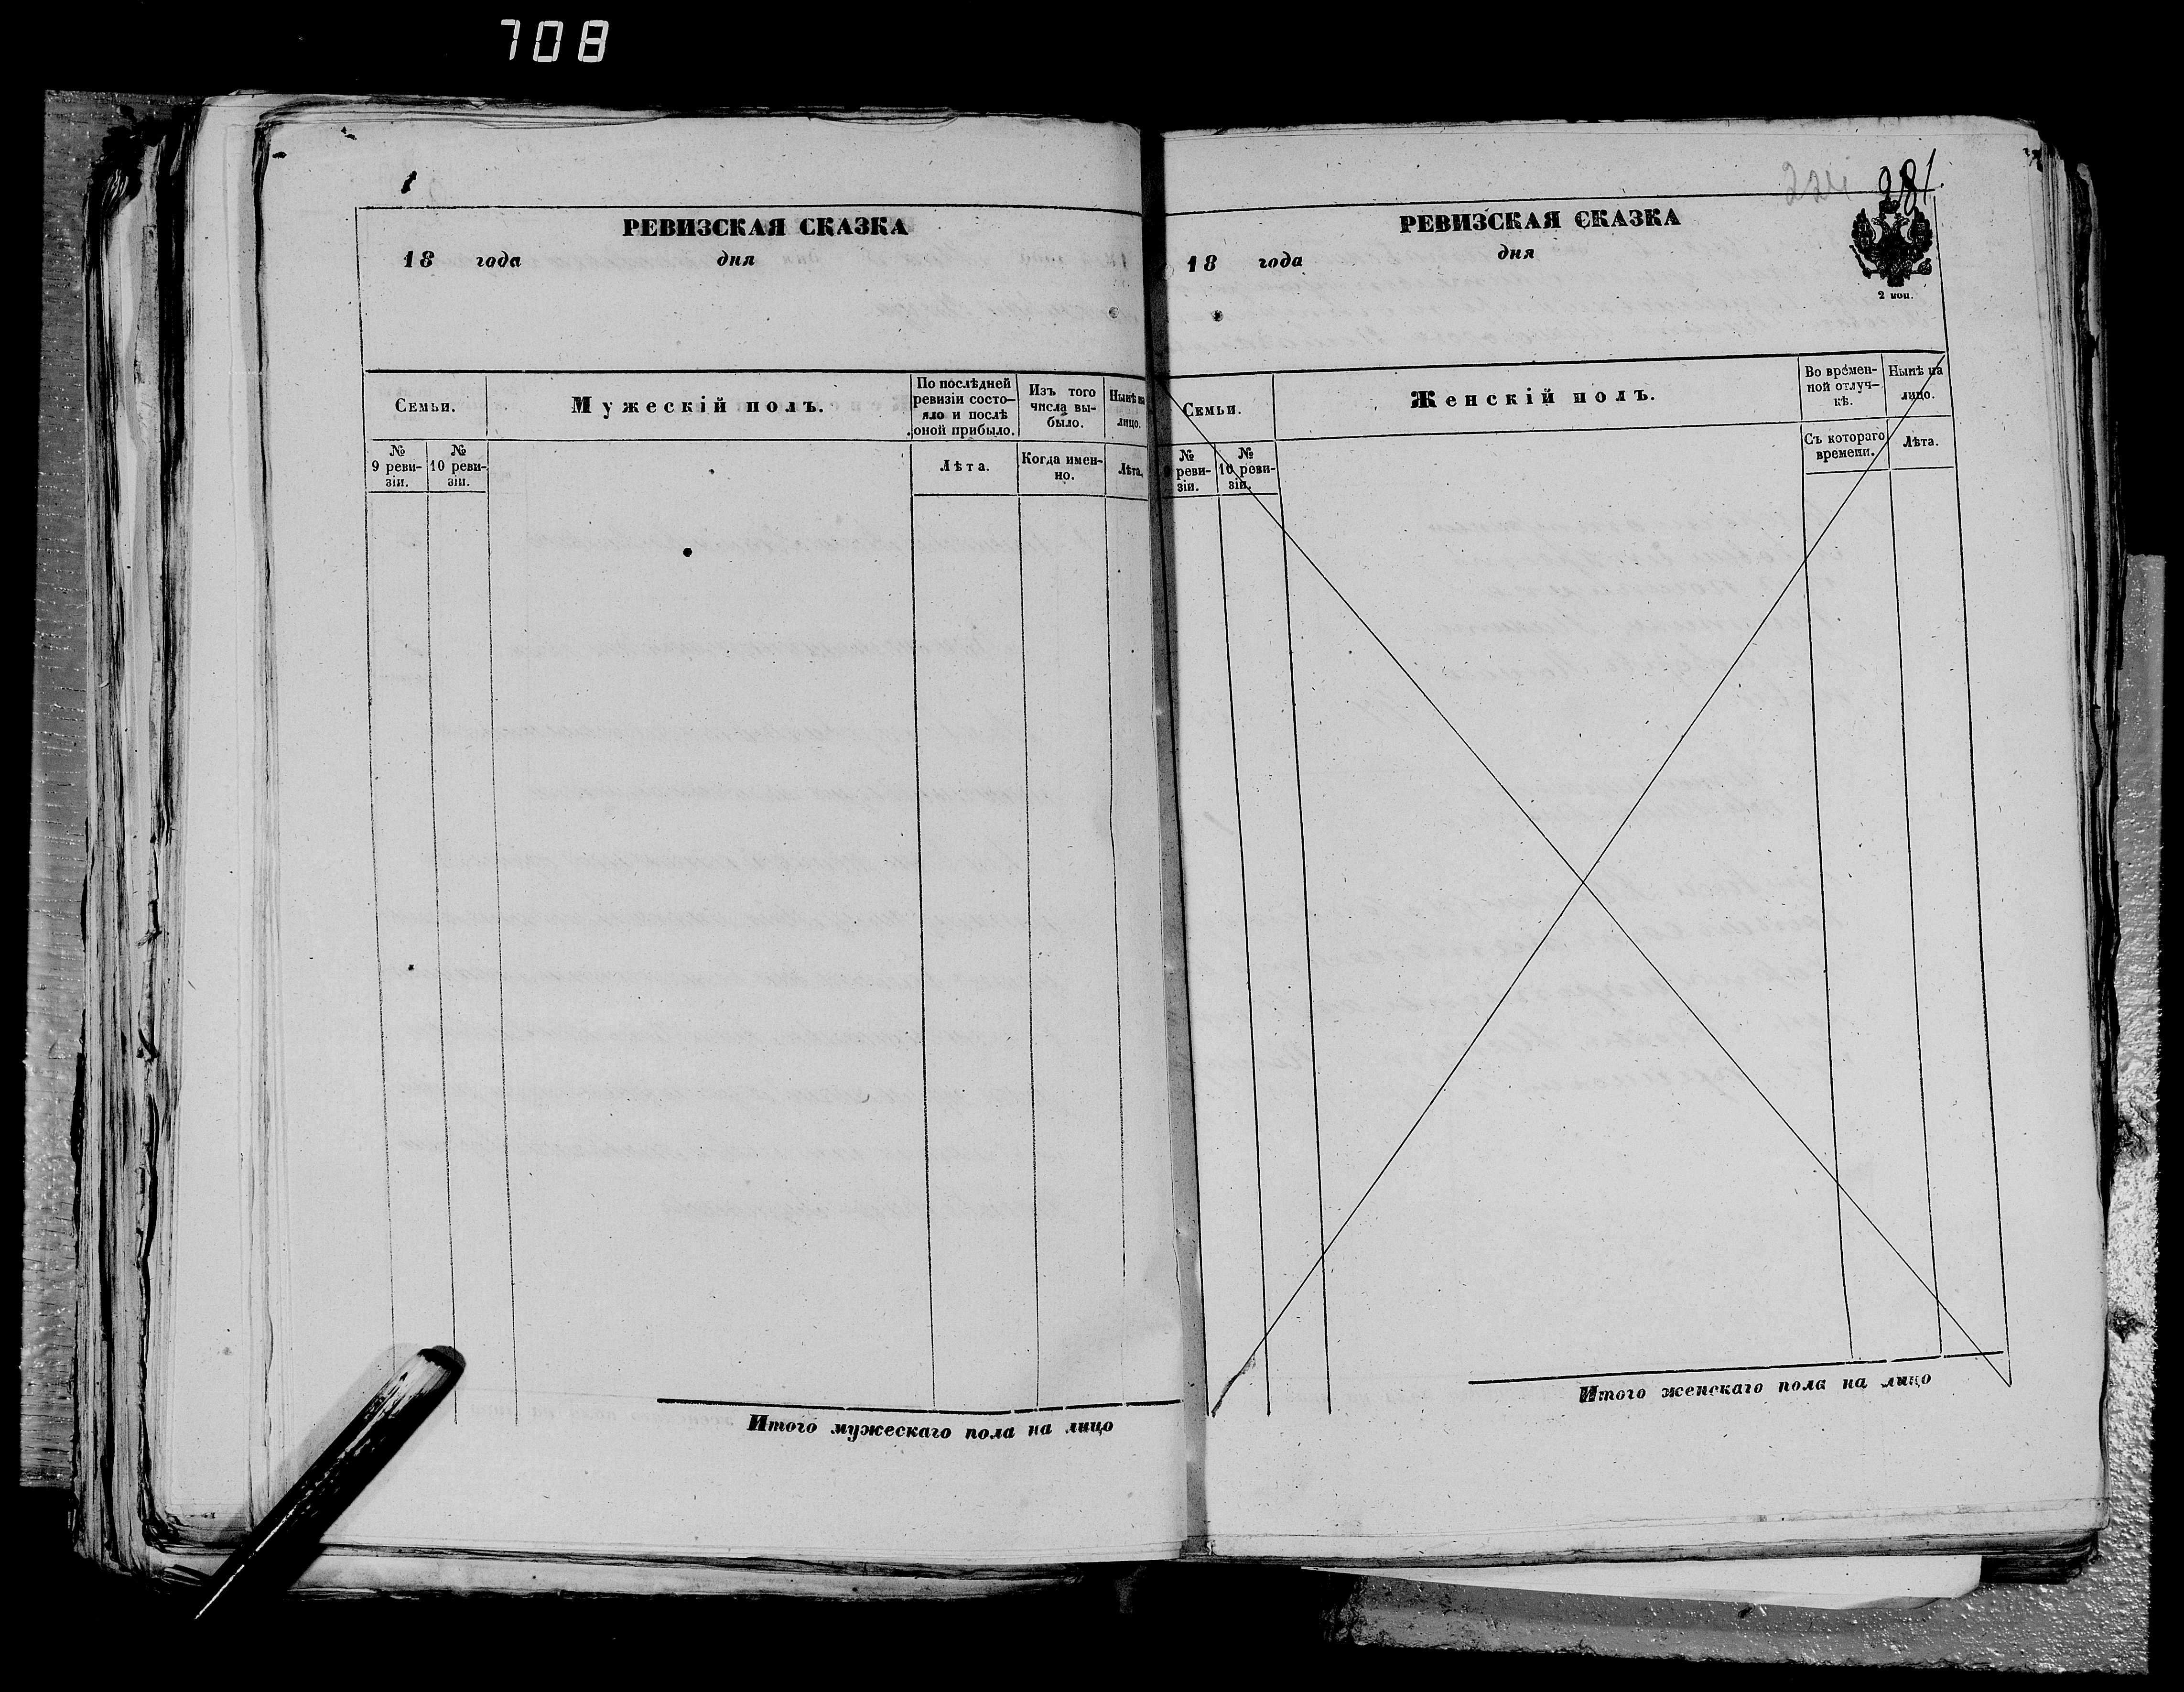 708
РЕВИЗСКАЯ СКАЗКА
18 года дня
Семьи.
Мужескій полъ.
По послѣдней ревизіи состо-
яло и послѣ
оной прибыло.
Изъ того
числа вы-
было.
Нынѣ на
лицо.
№
9 реви-
зіи.
№
10 реви-
зіи.
Лѣта.
Когда имен-
но.
Лѣта.
Итого мужескаго пола на лицо
281
РЕВИЗСКАЯ СКАЗКА
18 года дня
2 коп.
Семьи.
Женскій полъ.
Во времен-
ной отлуч-
кѣ.
Нынѣ на
лицо.
№
реви-
зіи.
№
10 реви-
зіи.
Съ котораго
времени.
Лѣта.
Итого женскаго пола на лицо